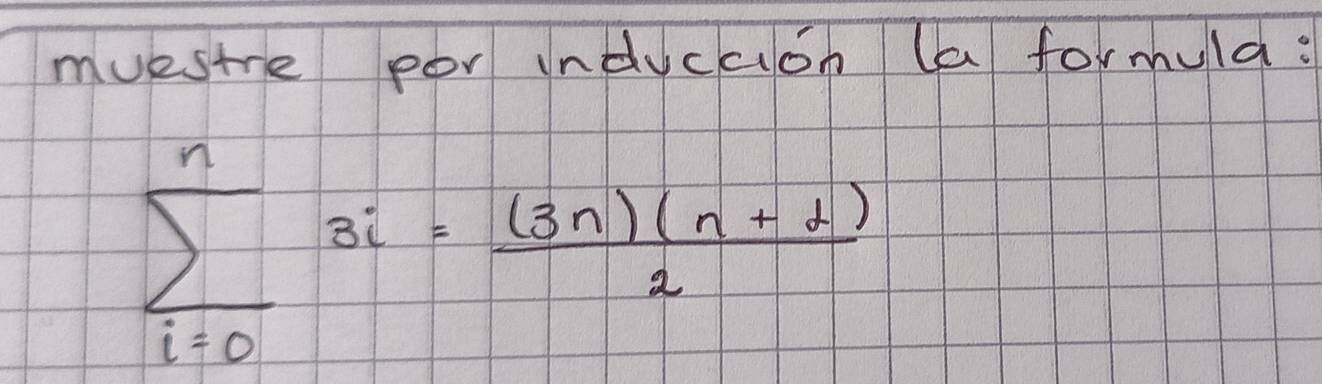 muestre por inducción la formula:
n
∑ 3i = (3n)(n + 1)
2
i=0